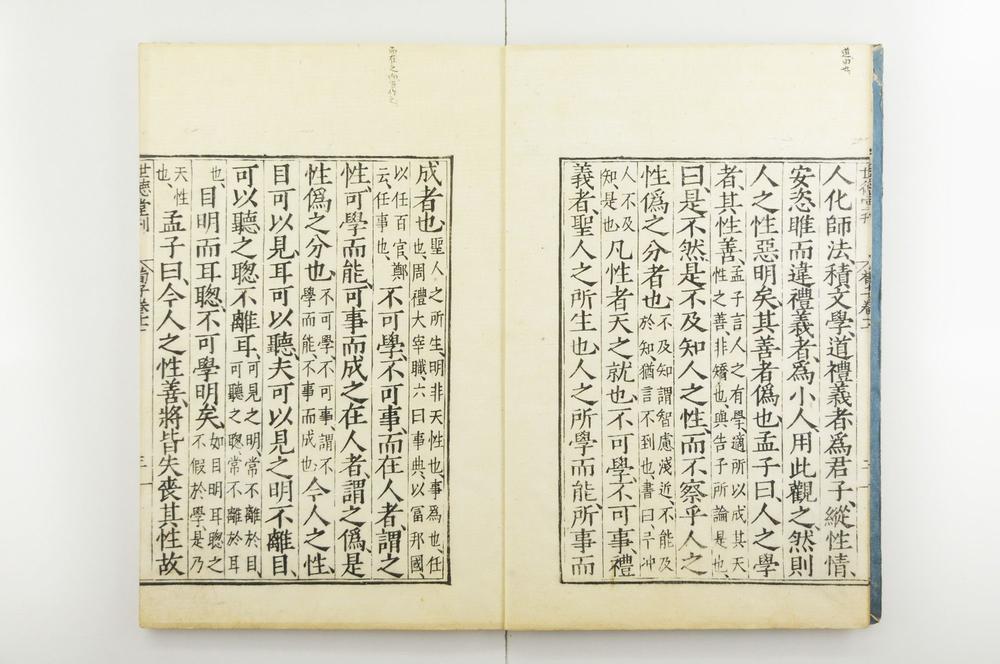 道由也
人化師法、積文學、道禮義者、爲君子、縱性情、
安恣睢而違禮義者、爲小人、用此觀之、然則
人之性惡明矣、其善者僞也、孟子曰、人之學
者、其性善、
孟子言、人之有學、適所以成其天
性之善、非矯也、與告子所論是也、
曰、是不然、是不及知人之性、而不察乎人之
性僞之分者也、
不及知、謂智慮淺近、不能及
於知、猶言不到也、書曰、亏冲
人不及
知是也
凡性者天之就也、不可學、不可事、禮
義者、聖人之所生也、人之所學而能、所事而
成者也、
聖人之所生、明非天性也、事、為也、任
也、周禮大宰職、六曰事典、以富邦國、
以任百官、鄭
云、任事也、
不可學、不可事、而在人者、謂之
性、可學而能、可事而成之在人者、謂之僞、是
性僞之分也、
不可學、不可事、謂不
學而能、不事而成也、
今人之性、
目可以見、耳可以聽、夫可以見之明不離目、
可以聽之聰不離耳、
可見之明、常不離於目、
可聽之聰、常不離於耳
也、
目明而耳聰、不可學明矣、
如目明耳聰之
不假於學、是乃
天性
也、
孟子曰、今人之性善、將皆失喪其性故
世德堂刊